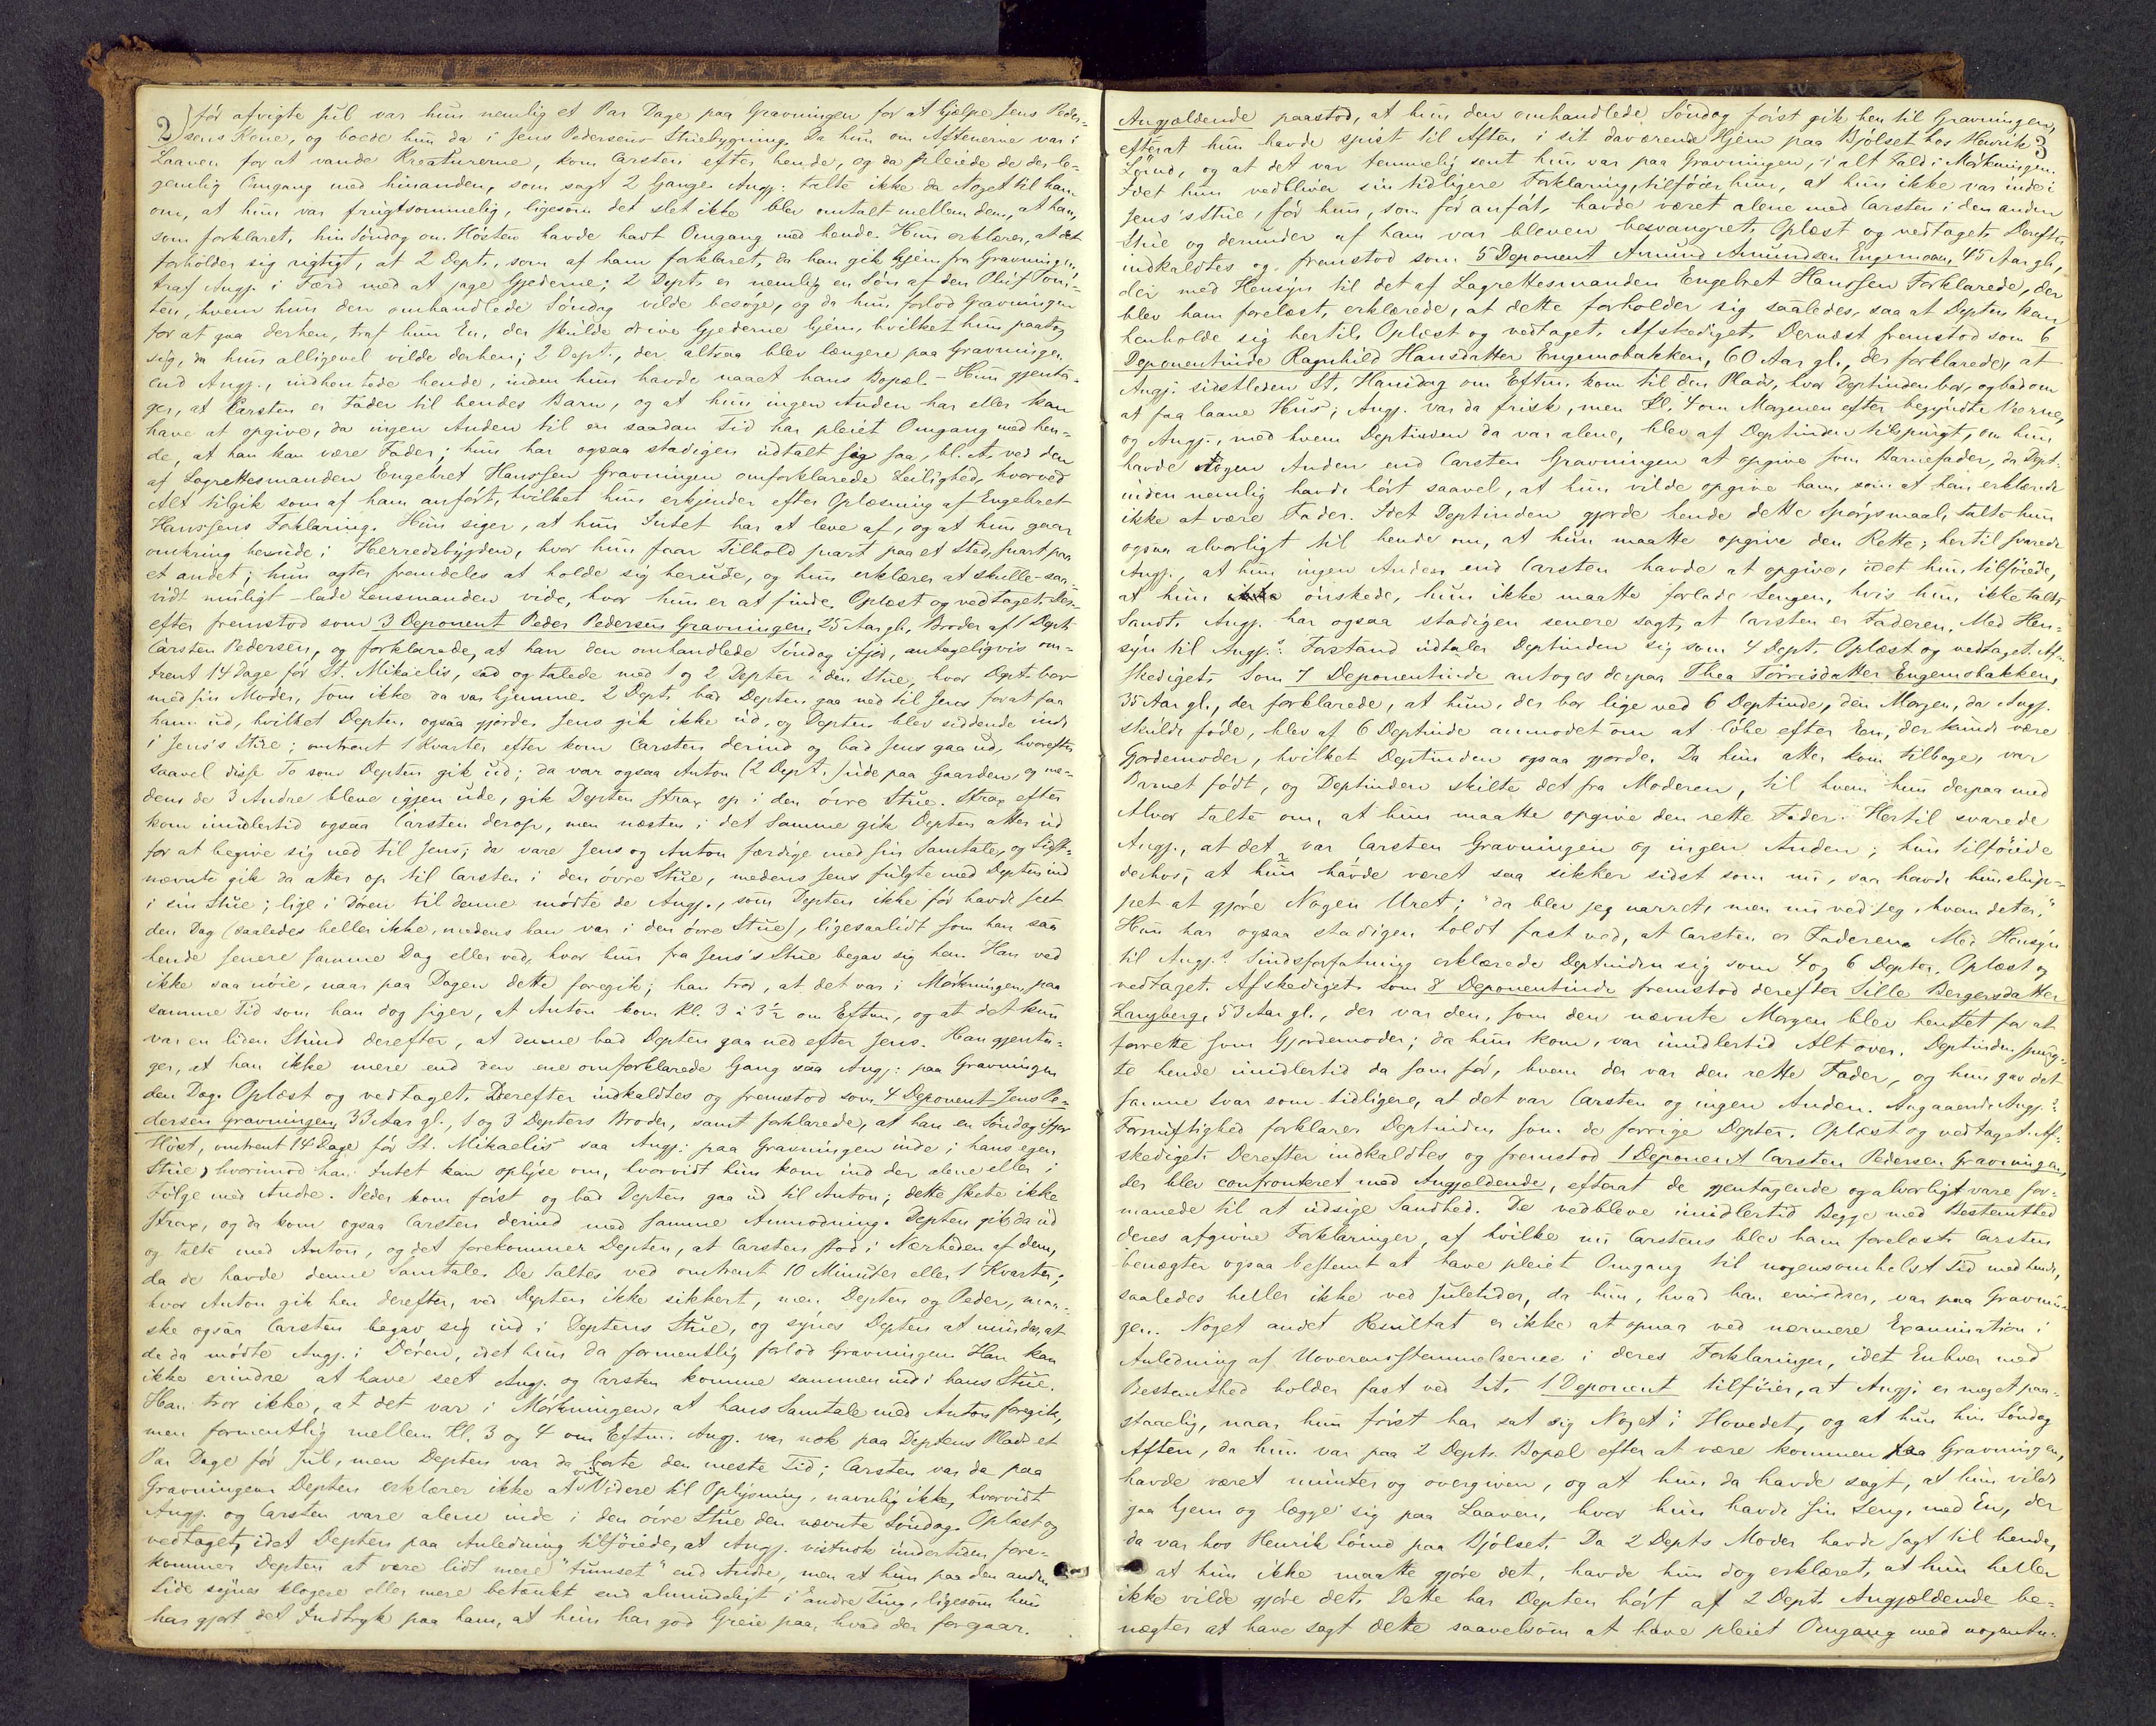 2
før afvigte Jul var hun nemlig et Par Dage paa Gravningen for at hjelpe Jens Peder-
sens Kone, og boede hun da i Jens Pedersens Stuebygning. Da hun om Aftenerne var i
Laaven for at vande Kreaturerne, kom Carsten efter hende, og da pleiede de der le-
gemlig Omgang med hinanden, som sagt 2 Gange. Angj. talte ikke da Noget til ham
om, at hun var frugtsommelig, ligesom det slet ikke blev omtalt mellem dem, at han,
som forklaret, hin Søndag om Høsten havde havt Omgang med hende. Hun erklærer, at det
forholder sig rigtigt, at 2 Dept., som af ham forklaret, da han gik hjem fra Gravningen,
traf Angj. i Færd med at jage Gjederne; 2 Dept. er nemlig en Søn af den Oluf
ten, hvem hun den omhandlede Søndag vilde besøge, og da hun forlod Gravningen
for at gaa derhen, traf hun En, der skulde drive Gjederne hjem, hvilket hun paatog
sig, da hun alligevel vilde derhen; 2 Dept., der altsaa blev længere paa Gravningen
end Angj., indhentede hende, inden hun havde naaet hans Bopæl. – Hun gjenta-
ger, at Carsten er Fader til hendes Barn, og at hun ingen Anden har eller kan
have at opgive, da ingen Anden til en saadan Tid har pleiet Omgang med hen-
de, at han kan være Fader; hun har ogsaa stadigen udtalt sig saa, bl. A. ved den
af Lagrettesmanden Engebret Hanssen Gravningen omforklarede Leilighed, hvorved
Alt tilgik som af ham anført, hvilket hun erkjender efter Oplæsning af Engebret
Hanssens Forklaring. Hun siger, at hun Intet har at leve af, og at hun gaar
omkring herude i Herredsbygden, hvor hun faar Tilhold snart paa et Sted, snart paa
et andet; hun agter fremdeles at holde sig herude, og hun erklærer at skulle – saa-
vidt muligt – lade Lensmanden vide, hvor hun er at finde. Oplæst og vedtaget. Der-
efter fremstod som 3 Deponent Peder Pedersen Gravningen, 25 Aar gl., Broder af 1 Dept.
Carsten Pedersen, og forklarede, at han den omhandlede Søndag ifjor, antageligvis om-
trent 14 Dage før St. Mikaelis, sad og talede med 1 og 2 Depter i den Stue, hvor Dept. bor
med sin Moder, som ikke da var hjemme. 2 Dept. bad Depten gaa ned til Jens for at faa
ham ud, hvilket Depten ogsaa gjorde. Jens gik ikke ud, og Depten blev siddende inde
i Jens's Stue; omtrent 1 Kvarter efter kom Carsten derind og bad Jens gaa ud, hvorefter
saavel disse To som Depten gik ud; da var ogsaa Anton (2 Dept.) ude paa Gaarden, og me-
dens de 3 Andre bleve igjen ude, gik Depten strax op i den øvre Stue. Strax efter
kom imidlertid ogsaa Carsten derop, men næsten i det Samme gik Depten atter ud
for at begive sig ned til Jens; da vare Jens og Anton færdige med sin Samtale, og Sidst-
nævnte gik da atter op til Carsten i den øvre Stue, medens Jens fulgte med Depten ind
i sin Stue; lige i Døren til denne mødte de Angj., som Depten ikke før havde seet
den Dag (saaledes heller ikke, medens han var i den øvre Stue), ligesaalidt som han saa
hende senere samme Dag eller ved, hvor hun fra Jens's Stue begav sig hen. Han ved
ikke saa nøie, naar paa Dagen dette foregik; han tror, at det var i Mørkningen, paa
samme Tid som han dog siger, at Anton kom Kl. 3 à 3½ om Eftm., og at det kun
var en liden Stund derefter, at denne bad Depten gaa ned efter Jens. Han gjenta-
ger, at han ikke mere end den ene omforklarede Gang saa Angj. paa Gravningen
den Dag. Oplæst og vedtaget. Derefter indkaldtes og fremstod som 4 Deponent Jens Pe-
dersen Gravningen, 33 Aar gl., 1 og 3 Depters Broder, samt forklarede, at han en Søndag ifjor
Høst, omtrent 14 Dage før St. Mikaelis saa Angj. paa Gravningen inde i hans egen
Stue, hvorimod han Intet kan oplyse om, hvorvidt hun kom ind der alene eller i
Følge med Andre. Peder kom først og bad Depten gaa ud til Anton; dette skete ikke
strax, og da kom ogsaa Carsten derind med samme Anmodning. Depten gik da ud
og talte med Anton, og det forekommer Depten, at Carsten stod i Nærheden af dem,
da de havde denne Samtale. De taltes ved omtrent 10 Minuter eller 1 Kvarter;
hvor Anton gik hen derefter, ved Depten ikke sikkert, men Depten og Peder, maa-
ske ogsaa Carsten begav sig ind i Deptens Stue, og synes Depten at mindes, at
de da mødte Angj. i Døren, idet hun da formentlig forlod Gravningen. Han kan
ikke erindre at have seet Angj. og Carsten komme sammen ind i hans Stue.
Han tror ikke, at det var i Mørkningen, at hans Samtale med Anton foregik,
men formentlig mellem Kl. 3 og 4 om Eftm. Angj. var nok paa Deptens Plads et
Par Dage før Jul, men Depten var da borte den meste Tid; Carsten var da paa
Gravningen. Depten erklærer ikke at vide Videre til Oplysning, navnlig ikke, hvorvidt
Angj. og Carsten vare alene inde i den øvre Stue den nævnte Søndag. Oplæst og
vedtaget, idet Depten paa Anledning tilføiede, at Angj. vistnok undertiden fore-
kommer Depten at være lidt mere "tunset" end Andre, men at hun paa den anden
Side synes klogere eller mere betænkt end almindeligt i andre Ting, ligesom hun
har gjort det Indtryk paa ham, at hun har god Greie paa, hvad der foregaar.
3
Angjældende paastod, at hun den omhandlede Søndag først gik hen til Gravningen,
efterat hun havde spist til Aften i sit daværende Hjem paa Bjølset hos Henrik
Lørud, og at det var temmelig sent hun var paa Gravningen, i alt Fald i Mørkningen.
Idet hun vedbliver sin tidligere Forklaring, tilføier hun, at hun ikke var inde i
Jens's Stue, før hun, som før anført, havde været alene med Carsten i den anden
Stue og derunder af ham var bleven besvangret. Oplæst og vedtaget. Derefter
indkaldtes og fremstod som 5 Deponent Amund Amundsen Engemoen, 45 Aar gl.,
der med Hensyn til det af Lagrettesmanden Engebret Hanssen Forklarede, der
blev ham forelæst, erklærede, at dette forholder sig saaledes, saa at Depten kan
henholde sig hertil. Oplæst og vedtaget. Afskediget. Dernæst fremstod som 6
Deponentinde Ragnhild Hansdatter Engemobakken, 60 Aar gl., der forklarede, at
Angj. sidstleden St. Hansdag om Eftm. kom til den Plads, hvor Deptinden bor, og bad om
at faa laane Hus; Angj. var da frisk, men Kl. 4 om Morgenen efter begyndte Veerne,
og Angj., med hvem Deptinden da var alene, blev af Deptinden tilspurgt, om hun
havde Nogen Anden end Carsten Gravningen at opgive som Barnefader, da Dept-
inden nemlig havde hørt saavel, at hun vilde opgive ham, som at han erklærede
ikke at være Fader. Idet Deptinden gjorde hende dette Spørgsmaal, talte hun
ogsaa alvorligt til hende om, at hun maatte opgive den Rette; hertil svarede
Angj., at hun ingen Anden end Carsten havde at opgive, idet hun tilføiede,
at hun ønskede, hun ikke maatte forlade Sengen, hvis hun ikke talte
Sandt. Angj. har ogsaa stadigen senere sagt, at Carsten er Faderen. Med Hen-
syn til Angj.s Forstand udtaler Deptinden sig som 4 Dept. Oplæst og vedtaget. Af-
skediget. Som 7 Deponentinde antoges derpaa Thea Torrisdatter Engemobakken,
35 Aar gl., der forklarede, at hun, der bor lige ved 6 Deptinde, den Morgen, da Angj.
skulde føde, blev af 6 Deptinde anmodet om at løbe efter En, der kunde være
Gjordemoder, hvilket Deptinden ogsaa gjorde. Da hun atter kom tilbage, var
Barnet født, og Deptinden skilte det fra Moderen, til hvem hun derpaa med
Alvor talte om, at hun maatte opgive den rette Fader. Hertil svarede
Angj., at det var Carsten Gravningen og ingen Anden; hun tilføiede
derhos, at hun havde været saa sikker sidst som nu, saa havde hun slup-
pet at gjøre Nogen Uret; "da blev jeg narret, men nu ved jeg, hvem det er."
Hun har ogsaa stadigen holdt fast ved, at Carsten er Faderen. Med Hensyn
til Angj.s Sindsforfatning erklærede Deptinden sig som 4 og 6 Depter. Oplæst og
vedtaget. Afskediget. Som 8 Deponentinde fremstod derefter Sille Bergersdatter
Langberg, 53 Aar gl., der var den, som den nævnte Morgen blev hentet for at
forrette som Gjordemoder; da hun kom, var imidlertid Alt over. Deptinden spurg-
te hende imidlertid da som før, hvem der var den rette Fader, og hun gav det
samme Svar som tidligere, at det var Carsten og ingen Anden. Angaaende Angj.s
Fornuftighed forklarer Deptinden som de forrige Depter. Oplæst og vedtaget. Af-
skediget. Derefter indkaldtes og fremstod 1 Deponent Carsten Pedersen Gravningen,
der blev confronteret med Angjældende, efterat de gjentagende og alvorligt vare for-
manede til at udsige Sandhed. De vedbleve imidlertid Begge med Bestemthed
deres afgivne Forklaringer, af hvilke nu Carstens blev ham forelæst. Carsten
benægter ogsaa bestemt at have pleiet Omgang til nogensomhelst Tid med hende,
saaledes heller ikke ved Juletider, da hun, hvad han erindrer, var paa Gravnin-
gen. Noget andet Resultat er ikke at opnaa ved nærmere Examination i
Anledning af Uoverensstemmelserne i deres Forklaringer, idet Enhver med
Bestemthed holder fast ved Sit. 1 Deponent tilføier, at Angj. er meget paa-
staaelig, naar hun først har sat sig Noget i Hovedet, og at hun hin Søndag
Aften, da hun var paa 2 Depts. Bopæl efter at være kommen fra Gravningen,
havde været munter og overgiven, og at hun da havde sagt, at hun vilde
gaa hjem og lægge sig paa Laaven, hvor hun havde sin Seng, med En, der
da var hos Henrik Lørud paa Bjølset. Da 2 Depts Moder havde sagt til hende,
at hun ikke maatte gjøre det, havde hun dog erklæret, at hun heller
ikke vilde gjøre det. Dette har Depten hørt af 2 Dept. Angjældende be-
nægter at have sagt dette saavelsom at have pleiet Omgang med nogen An-